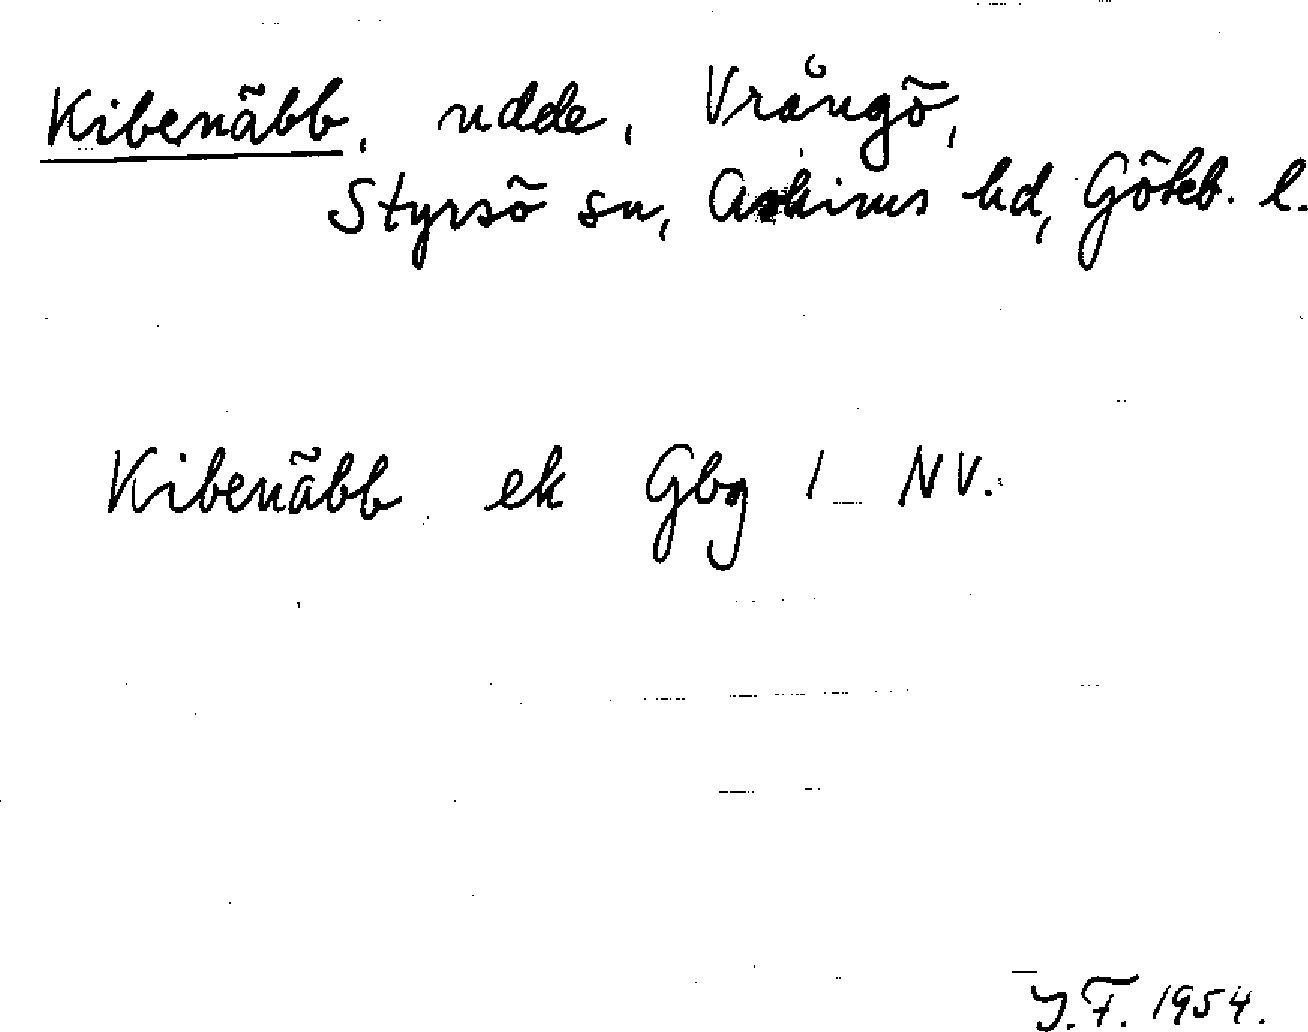 Kibenäbb, udde, Vrångö,
Styrsö sn, Askims hd, Göteb. l.
Kibenäbb ek Gbg 1 NV.
J.F. 1954.